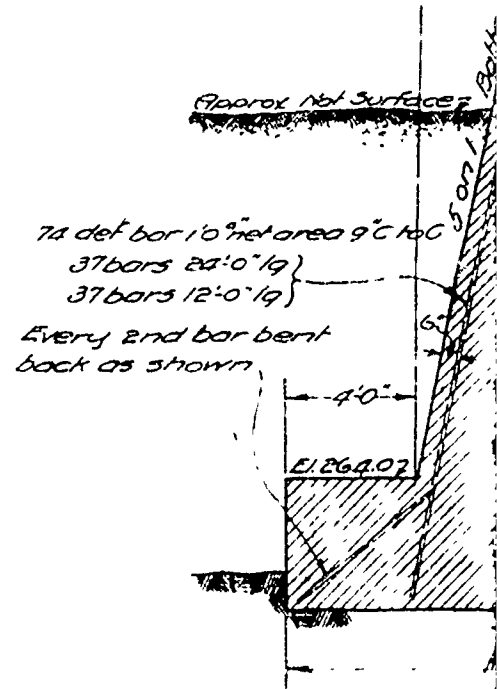 Approx Nat Surface
5 on 1 Batt
74 def bar 1·0"net area 9"C to C
37bars 24'-0"lg
37bars 12'-0"lg
6"
Every 2nd bar bent
back as shown
4'-0"
El.264.07